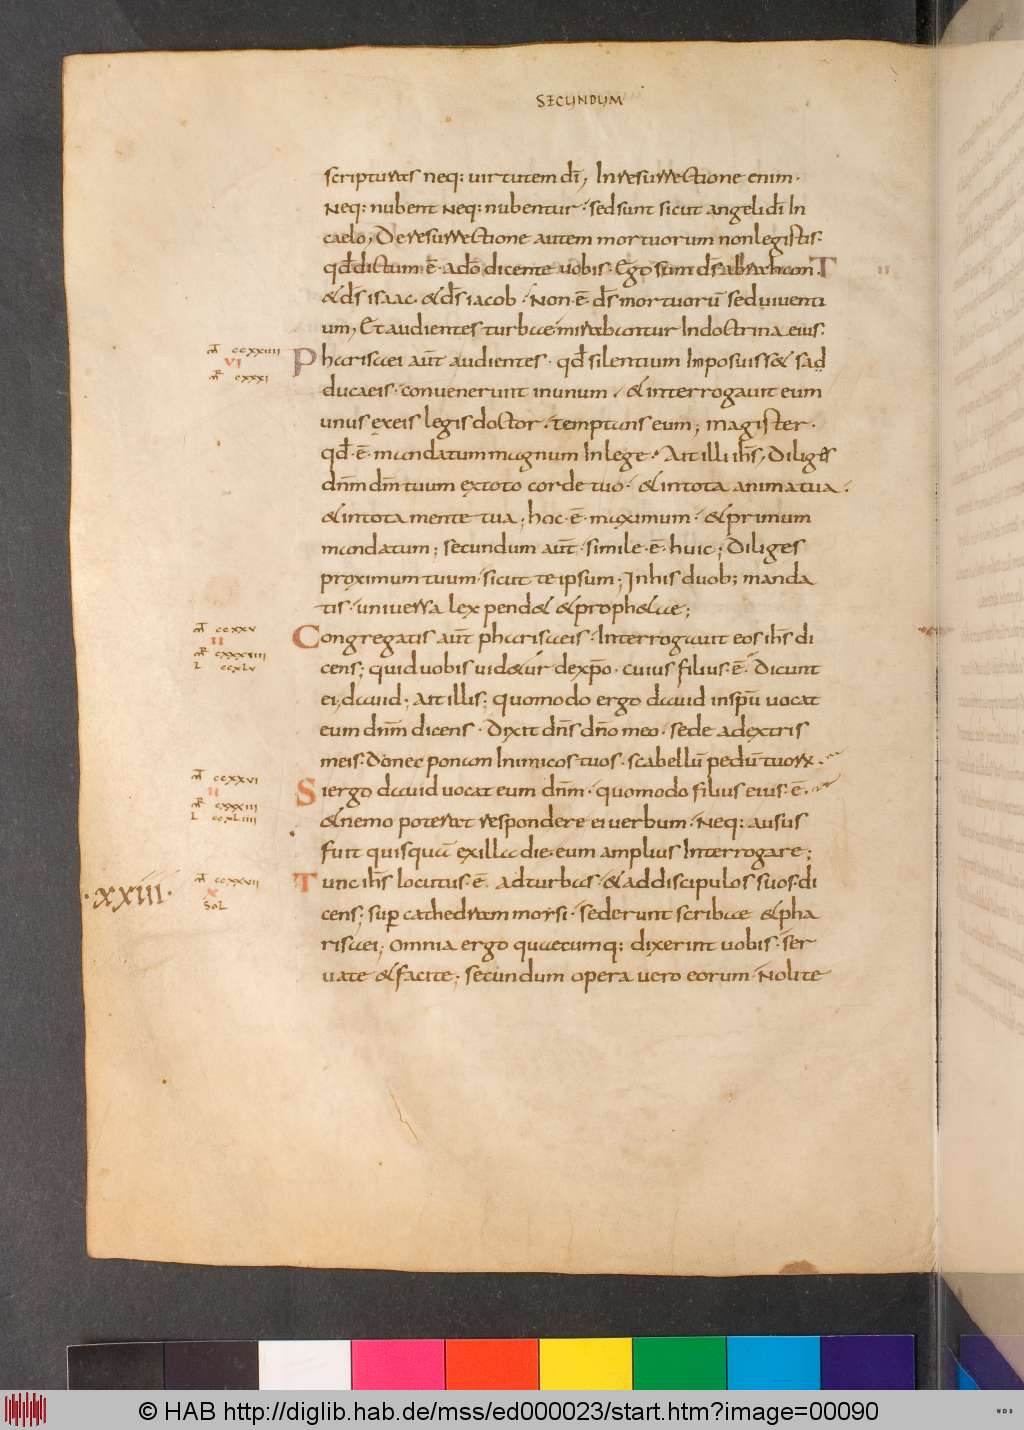 SECUNDUM
scripturas neq: uirtutem dī, In resurrectione enim·
Neq: nubent neq: nubentur· sed sunt sicut angeli dī In
caelo, De resurrectione autem mortuorum non legistis·
qđ dictum·ē· a dō dicente uobis· Ego sum dr̄ abraham·
& dr̄ isaac· & dr̄ iacob· Non·ē· dr̄ mortuorū sed uiuenti
um, Et audientes turbae· mirabantur In doctrina eius·
m̄ ccxxiiii
vi
mr̄ cxxxi
Pharisaei aut̄ audientes· qđ silentium Imposuiss& sad
ducaeis· conuenerunt in unum· & interrogauit eum
unus ex eis legis doctor· temptans eum; magister·
qđ·ē· mandatum magnum In lege· Ait illi ih̄s, Diliges
dn̄m dm̄ tuum ex toto corde tuo· & in tota anima tua·
& in tota mente tua; hoc·ē· maximum· & primum
mandatum; secundum aut̄· simile·ē· huic; Diliges
proximum tuum· sicut te ipsum; In his duob; manda
tis· uniuersa lex pend& & proph&ae;
m̄ ccxxv
ii
mr̄ cxxxiiii
L ccxlv
Congregatis aut̄ pharisaeis· Interrogauit eos ih̄s di
cens; quid uobis uid&ur de xp̄o· cuius filius·ē· Dicunt
ei, dauid; Ait illis; quomodo ergo dauid in sp̄u uocat
eum dn̄m dicens· Dixit dn̄s dn̄o meo· sede a dextris
meis· Donec ponam Inimicos tuos· scabellū pedū tuorx·
m̄ ccxxvi
ii
mr̄ cxxxiii
L ccxliiii
Si ergo dauid uocat eum dn̄m· quomodo filius eius·ē·
& nemo poterat respondere ei uerbum· Neq: ausus
fuit quisquā ex illa die· eum amplius Interrogare;
·xxiii·
m̄ ccxxvii
x
SoL
Tunc ih̄s locutus·ē· ad turbas· & ad discipulos suos· di
cens; sup cathedram moysi· sederunt scribae & pha
risaei; Omnia ergo quaecumq: dixerint uobis· ser
uate & facite; secundum opera uero eorum· Nolite
© HAB http://diglib.hab.de/mss/ed000023/start.htm?image=00090